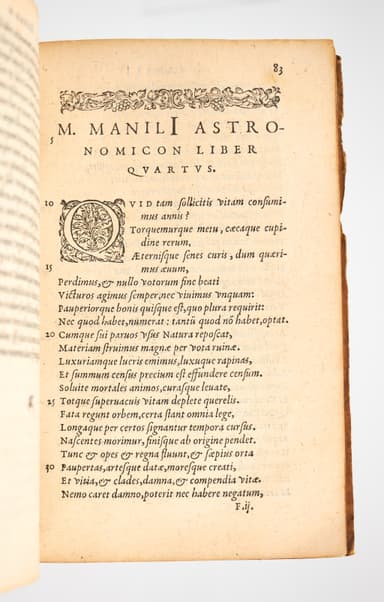 83
M. MANILI ASTRO-
5
NOMICON LIBER
QVARTVS.
10 QVID tam sollicitis vitam consumi-
mus annis?
Torquemurque metu, cæcaque cupi-
dine rerum,
Æternisque senes curis, dum quæri-
15 mus æuum,
Perdimus, & nullo votorum fine beati
Victuros agimus semper, nec viuimus vnquam:
Pauperiorque bonis quisque est, quo plura requirit:
Nec quod habet, numerat: tantū quod nō habet, optat.
20 Cumque sui paruos vsus Natura reposcat,
Materiam struimus magnæ per vota ruinæ.
Luxuriamque lucris emimus, luxuque rapinas,
Et summum census precium est effundere censum.
Soluite mortales animos, curasque leuate,
25 Totque superuacuis vitam deplete querelis.
Fata regunt orbem, certa stant omnia lege,
Longaque per certos signantur tempora cursus.
Nascentes morimur, finisque ab origine pendet.
Tunc & opes & regna fluunt, & sæpius orta
30 Paupertas, artesque datæ, moresque creati,
Et vitia, & clades, damna, & compendia vitæ.
Nemo caret damno, poterit nec habere negatum,
F.ij.